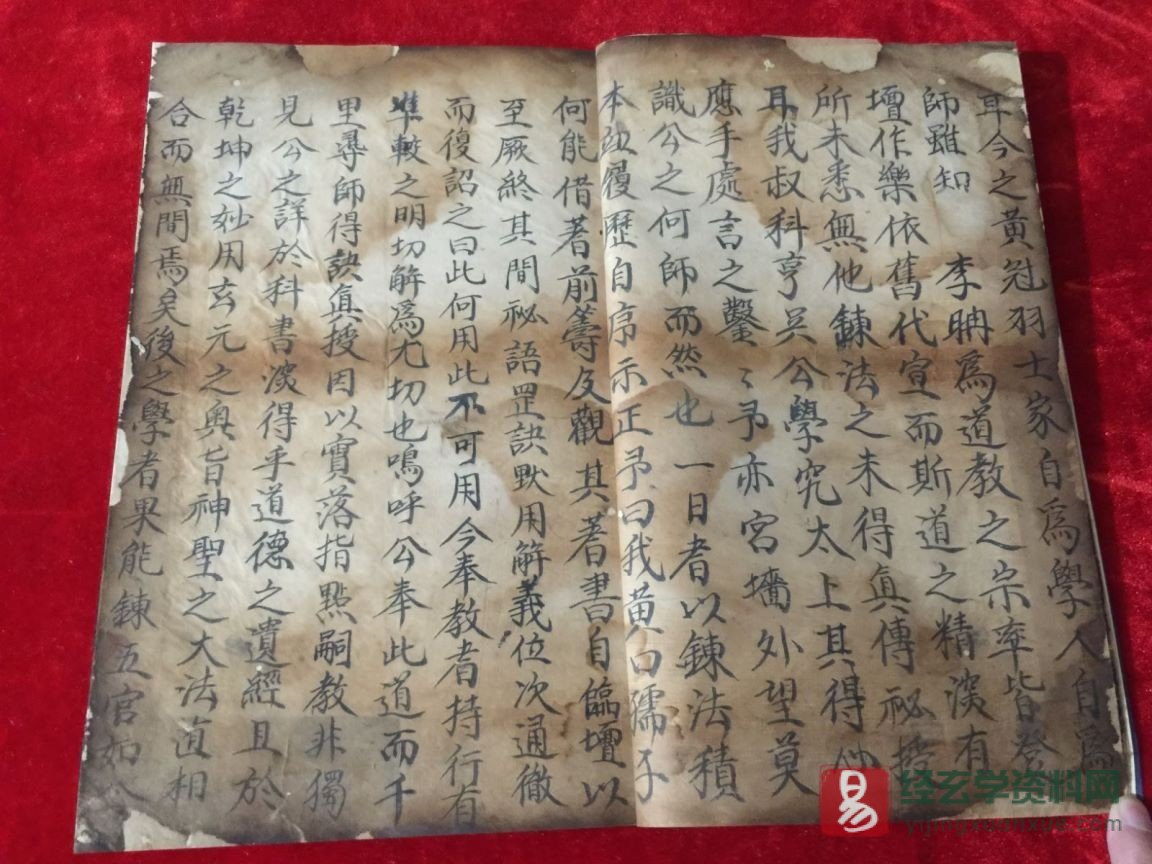 耳今之黄冠羽士家自為學人自為
師雖知 李聃為道教之宗率皆登
壇作樂依舊代宣而斯道之精深有
所未悉無他鍊法之未得真傳祕授
耳我叔科亨吳公學究太上其得心
應手處言之鑿〻予亦宮墻外望莫
識公之何師而然也一日者以鍊法積
本並履歷自序示正予曰我黄口孺子
何能借著前籌及觀其著書自臨壇以
至厥終其間祕語罡訣默用解義位次通徹
而復詔之曰此何用此不可用今奉教者持行有
準較之明切解為尤切也嗚呼公奉此道而千
里尋師得訣真授因以實落指點嗣教非獨
見公之詳於科書深得乎道德之遺經且於
乾坤之妙用玄元之奥旨神聖之大法直相
合而無間焉矣後之學者果能鍊五官如
易
经玄学资料网
yijingxuanxue.com